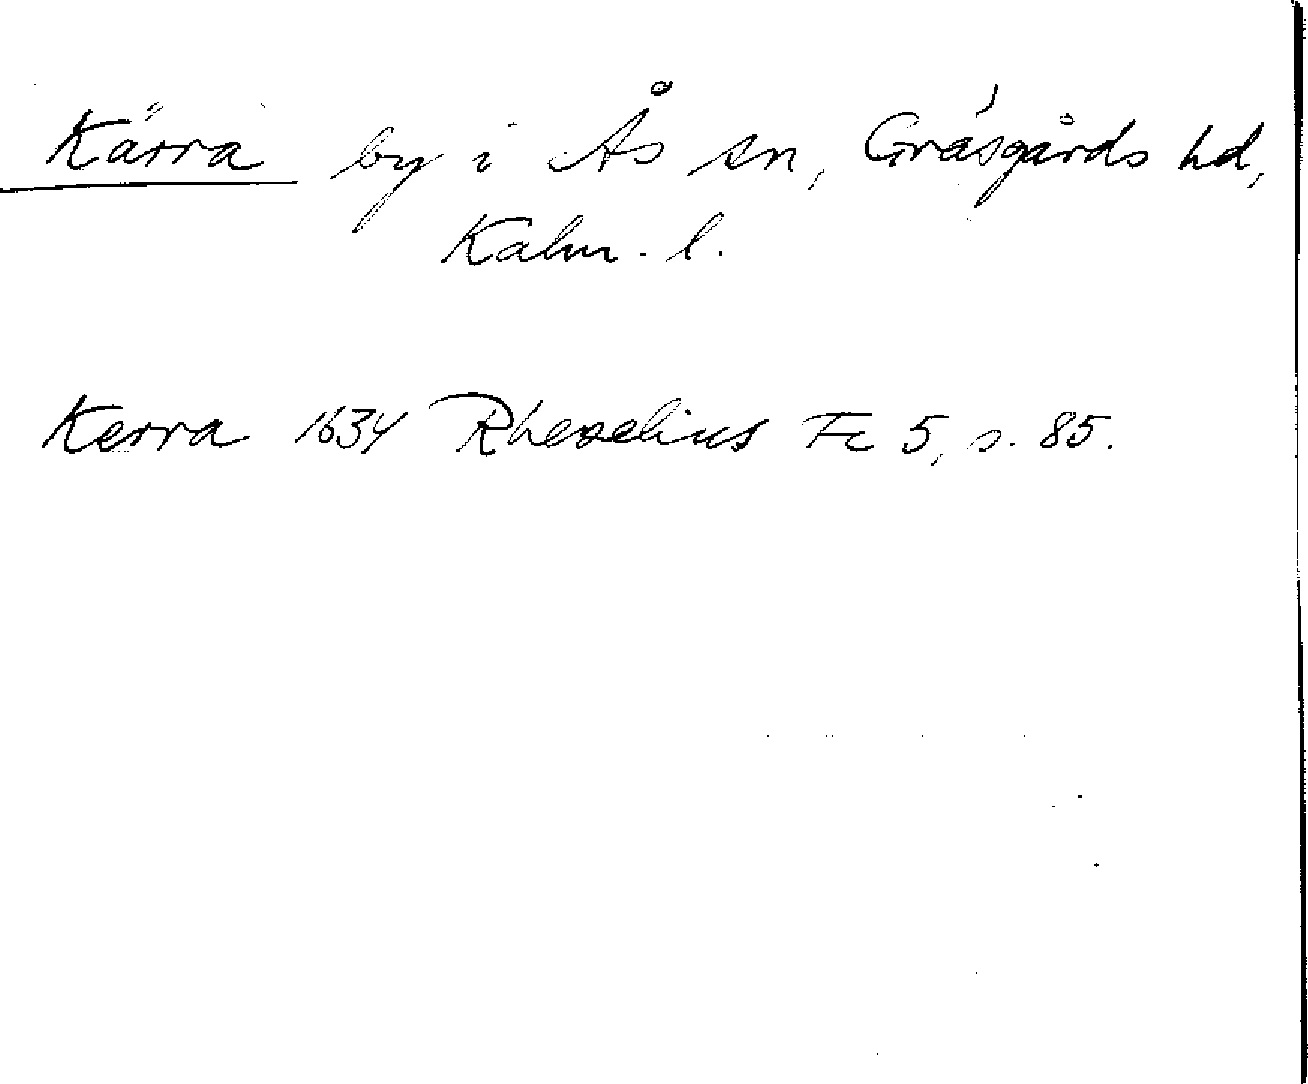 Kärra by i Ås sn, Gräsgårds hd,
Kalm. l.
Kerra 1634 Rhezelius Fc 5, s. 85.